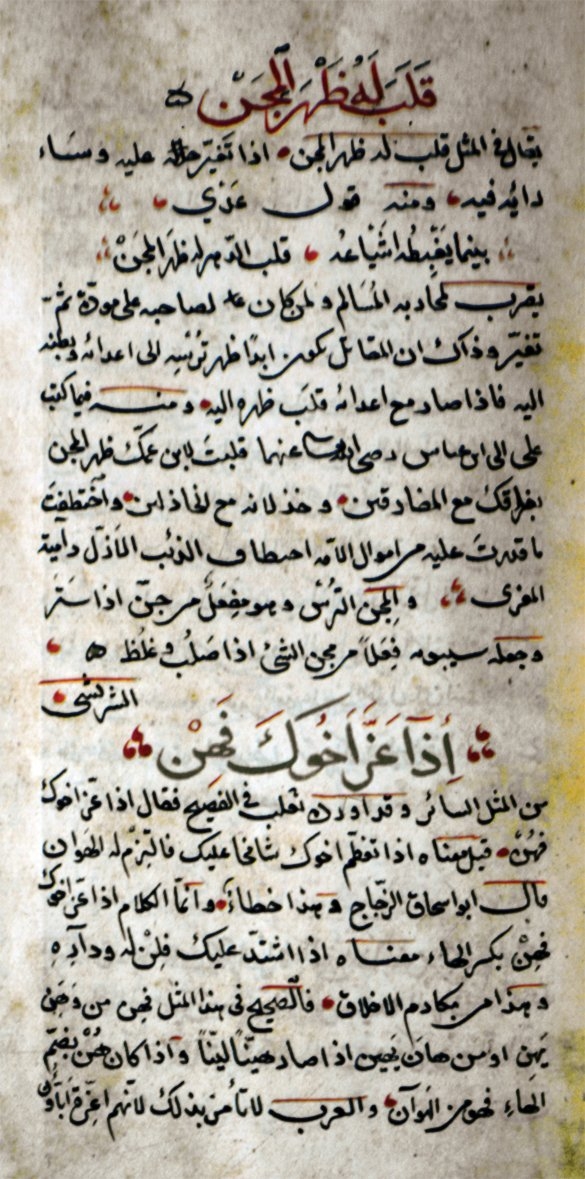 قَلَبَ لَهُ ظَهْرَ الْمِجَنّ
يقال في المثل قلب له ظهر المجن اذا تغيّر حاله عليه وساء
رايه فيه ومنه قول عدي
بينما يغبطه اشياعه قلب الدهر له ظهر المجنْ
يضرب لمحاربه المسالم ولمن كان لصاحبه على مودّة ثم
تغيّر وذاك ان المقاتل يكون ابدًا ظهر ترسه الى اعدائه وبطنه
اليه فاذا صار مع اعدائه قلب ظهره اليه ومنه فيما كتب
علي الى ابن عباس رضي الله عنهما قلبت لابن عمّك ظهر المجن
بفراقك مع المفارقين وخذلانه مع الخاذلين واختطفت
ما قدرت عليه من اموال الامة اختطاف الذئب الازلّ دامية
المعزى والمجن الترس وهو مِفعَلٌ من جنّ اذا ستر
وجعله سيبويه فِعَلاً من مجن الشئ اذا صلُب وغلظ
الشريشي
إذا عَزَّ اَخُوكَ فَهِنْ
من المثل السائر وقد اورده ثعلب في الفصيح فقال اذا عزّ اخوك
فهُنْ قيل معناه اذا تعظّم اخوك شامخا عليك فالتزم له الهوان
قال ابو اسحاق الزّجاج وهذا خطاءٌ وانّما الكلام اذا عزّ اخوك
فهِنْ بكسر الهاء معناه اذا اشتدّ عليك فلِنْ له ودارِهِ
وهذا من مكارم الاخلاق فالصحيح في هذا المثل فهِن من وهَنَ
يهن او من هان يهين اذا صار هيّنًا ليّنًا واذا كان هُنْ بضمّ
الهاءِ فهو من الهوان والعرب لا تأمر بذلك لانهم اعزّة اباؤن